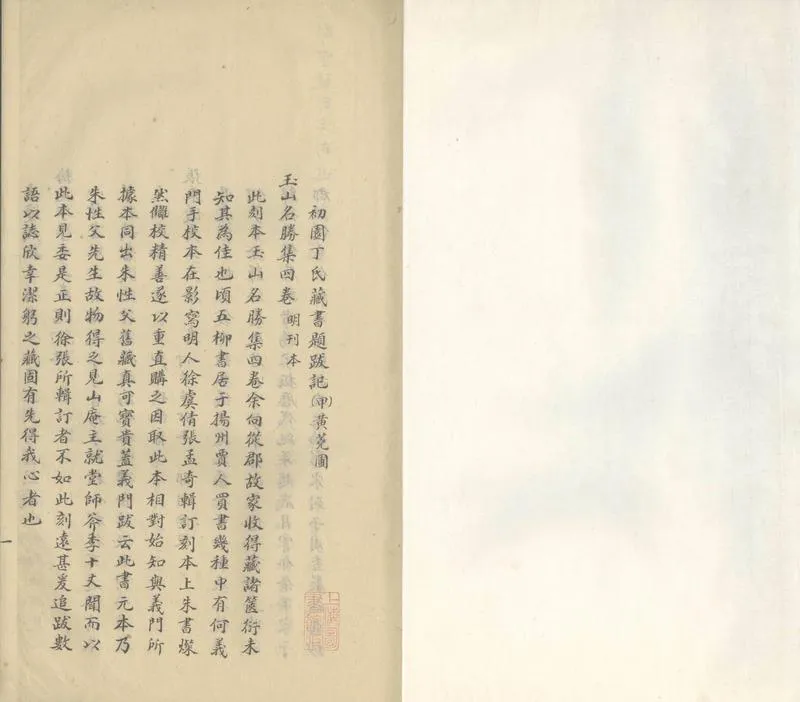 初園丁氏藏書題跋記(中)黃蕘圃
玉山名勝集四卷 明刊本
此刻本玉山名勝集四卷余向從郡故家收得藏諸篋衍未
知其為佳也頃五柳書居于揚州賈人買書幾種中有何義
門手校本在影寫明人徐虞倩張孟奇輯訂刻本上朱書燦
然讎校精善遂以重直購之因取此本相對始知與義門所
據本同出朱性父舊藏真可寶貴蓋義門跋云此書元本乃
朱性父先生故物得之見山庵主就堂師斧季十丈聞而以
此本見委是正則徐張所輯訂者不如此刻遠甚爰追跋數
語以誌欣幸潔躬之藏固有先得我心者也
一